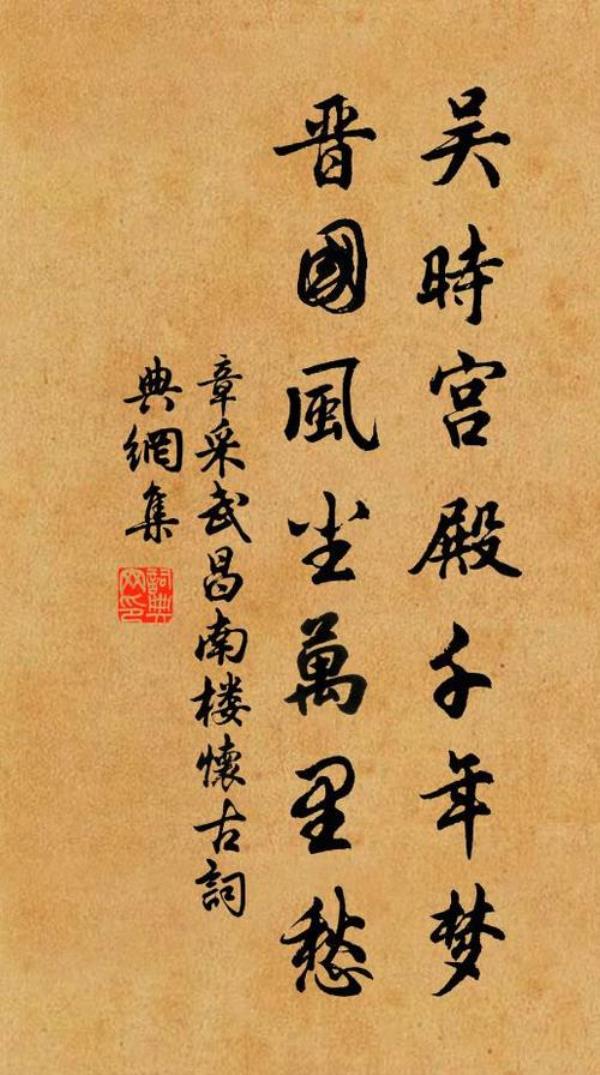 吴時宫殿千年梦
晋國風尘萬里愁
章采武昌南楼懷古詞
典網集
詞典
网印